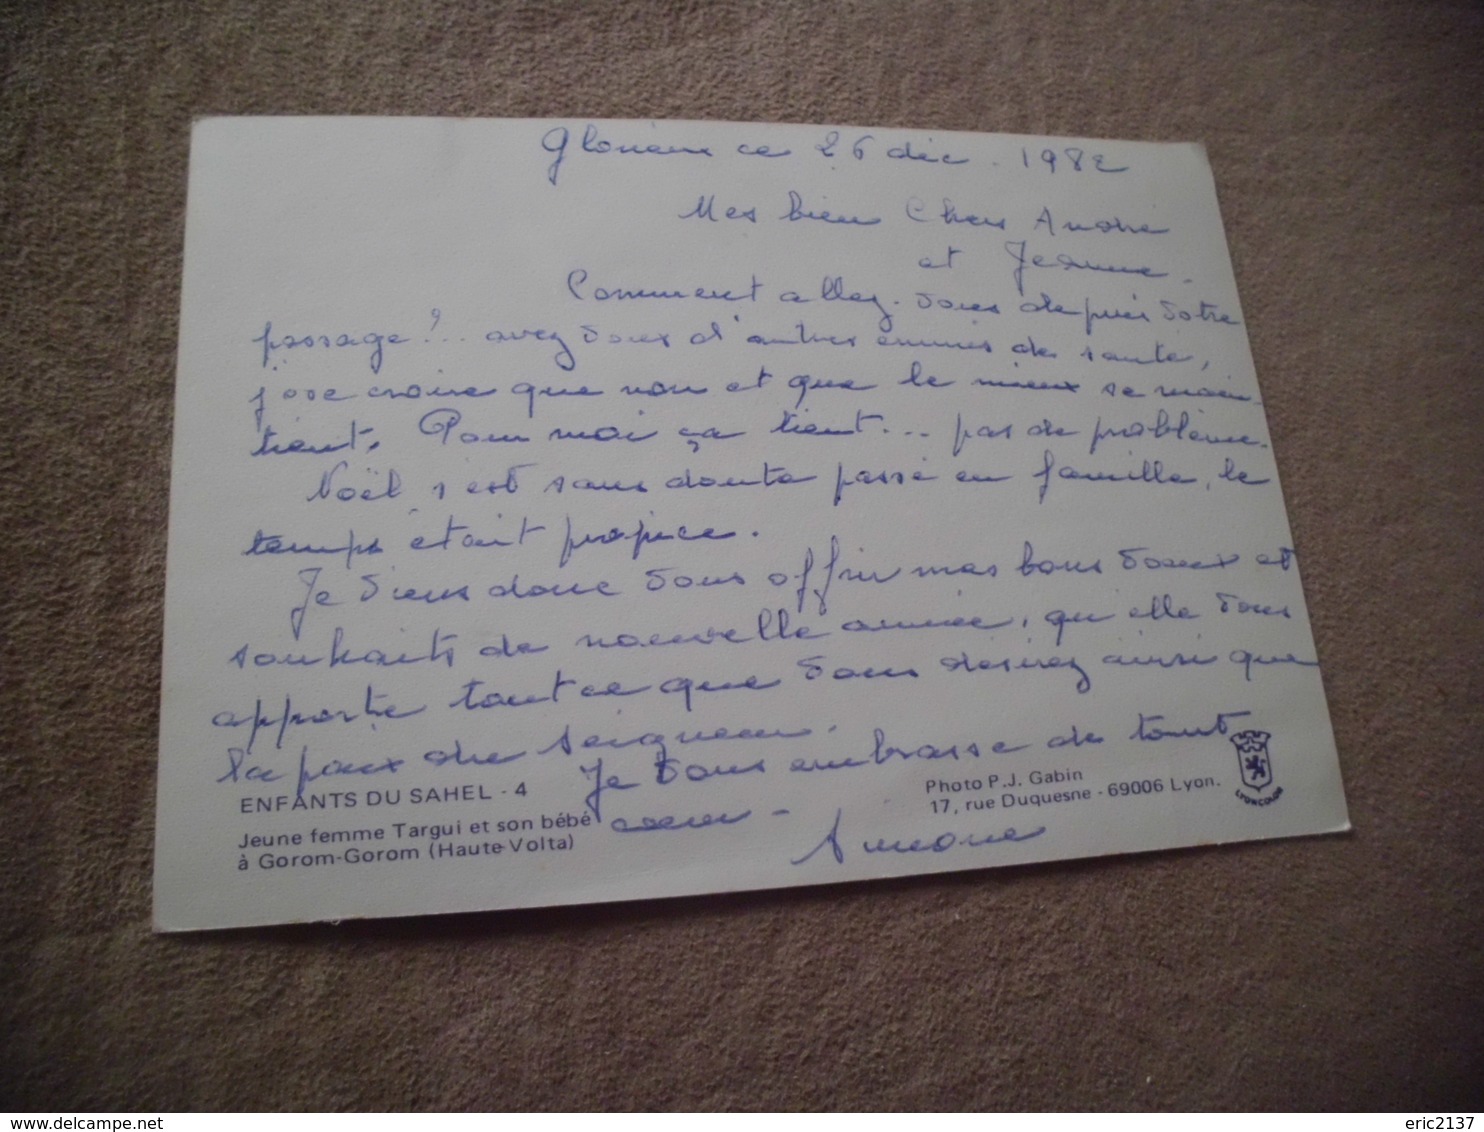 ce 26 déc. 1982
Mes bien Chers André
et Jeanne.
Comment allez-vous depuis votre
passage ?.. avez vous eu d'autres ennuis de santé,
j'ose croire que non et que le mieux se main-
tient. Pour moi ça tient... pas de problème.
Noël s'est sans doute passé en famille, le
temps était propice.
Je viens donc vous offrir mes bons voeux et
souhaits de nouvelle année, qu'elle vous
apporte tout ce que vous désirez ainsi que
la paix du Seigneur.
Je vous embrasse de tout
coeur -
ENFANTS DU SAHEL - 4
Jeune femme Targui et son bébé
à Gorom-Gorom (Haute-Volta)
Photo P.J. Gabin
17, rue Duquesne - 69006 Lyon.
LYONCOLOR
delcampe.net
eric2137